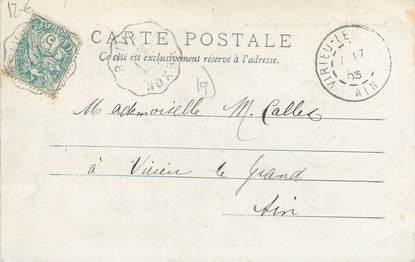 12-
CARTE POSTALE
Ce côté est exclusivement réservé à l'adresse.
VIRIEU-LE-
17
03
AIN
19
5
Mademoiselle M. Calles
à Virieu le Grand
Ain